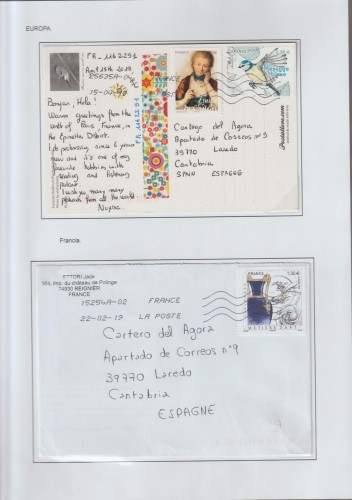 EUROPA.
FR-1162291
April 15th 2019
85535A-02
15-04-19
Bonjour, Hola!
Warm greetings from the
north of Paris, France, in
the Epinette District.
I do postcrossing since 6 years
now and it's one of my
favourite hobbies with
reading and
I wish you many many
postcards from all the world.
FR-1162291
FRANCE
Cartego del Agora
Apartado de Correos nº9
39770 Laredo
Cantabria
SPAIN ESPAGNE
Francia.
ETTORI Jack
564, imp. du château de Polinge
74930 REIGNIER
FRANCE
15254A-02 FRANCE
22-02-19 LA POSTE
FRANCE 1,30 €
MÉTIERS D'ART
Cartero del Agora
Apartado de Correos nº9
39770 Laredo
Cantabria
ESPAGNE